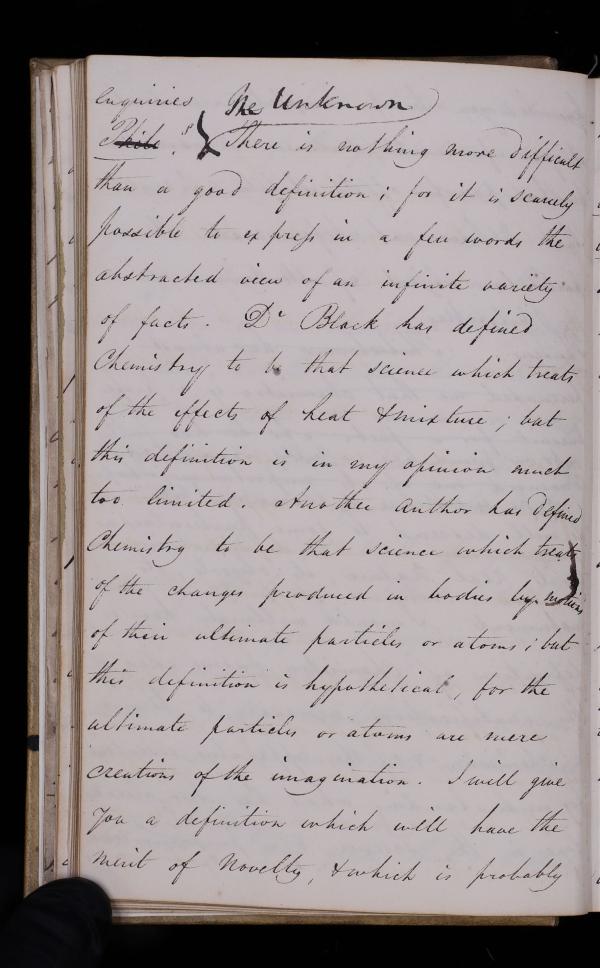 Enquiries The Unknown
"Phile." There is nothing more difficult
than a good definition; for it is scarcely
possible to express in a few words the
abstracted view of an infinite variety
of facts. Dr Black has defined
Chemistry to be that science which treats
of the effects of heat & mixture; but
this definition is in my opinion much
too limited. Another author has defined
Chemistry to be that science which treats
of the changes produced in bodies by motions
of their ultimate particles or atoms; but
this definition is hypothetical, for the
ultimate particles or atoms are mere
creations of the imagination. I will give
you a definition which will have the
merit of novelty, & which is probably